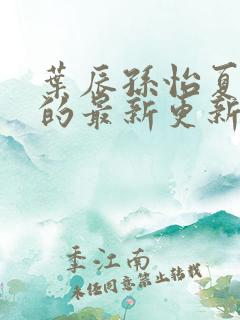 葉辰孫怡夏
的最新更新
季江南
未经同意禁止转载